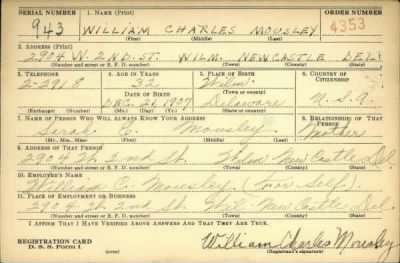 SERIAL NUMBER 1. NAME (Print) ORDER NUMBER
943 WILLIAM CHARLES MOUSLEY 4353
(First) (Middle) (Last)
2. ADDRESS (Print)
2904 W. 2ND. ST. WILM. NEWCASTLE DEL.
(Number and street or R. F. D. number) (Town) (County) (State)
3. TELEPHONE 4. AGE IN YEARS 5. PLACE OF BIRTH 6. COUNTRY OF CITIZENSHIP
2-2918 33 Wilm.
DATE OF BIRTH (Town or county)
DEC. 21, 1907 Delaware U.S.A.
(Exchange) (Number) (Mo.) (Day) (Yr.) (State or country)
7. NAME OF PERSON WHO WILL ALWAYS KNOW YOUR ADDRESS 8. RELATIONSHIP OF THAT PERSON
Sarah E. Mousley Mother
(Mr., Mrs., Miss) (First) (Middle) (Last)
9. ADDRESS OF THAT PERSON
2904 W. 2nd St. New Castle Del.
(Number and street or R. F. D. number) (Town) (County) (State)
10. EMPLOYER'S NAME
William C. Mousley (for self)
11. PLACE OF EMPLOYMENT OR BUSINESS
2904 W. 2nd St. Wil. New Castle Del.
(Number and street or R. F. D. number) (Town) (County) (State)
I AFFIRM THAT I HAVE VERIFIED ABOVE ANSWERS AND THAT THEY ARE TRUE.
REGISTRATION CARD
D. S. S. Form 1 (over) William Charles Mousley
(Registrant's signature)